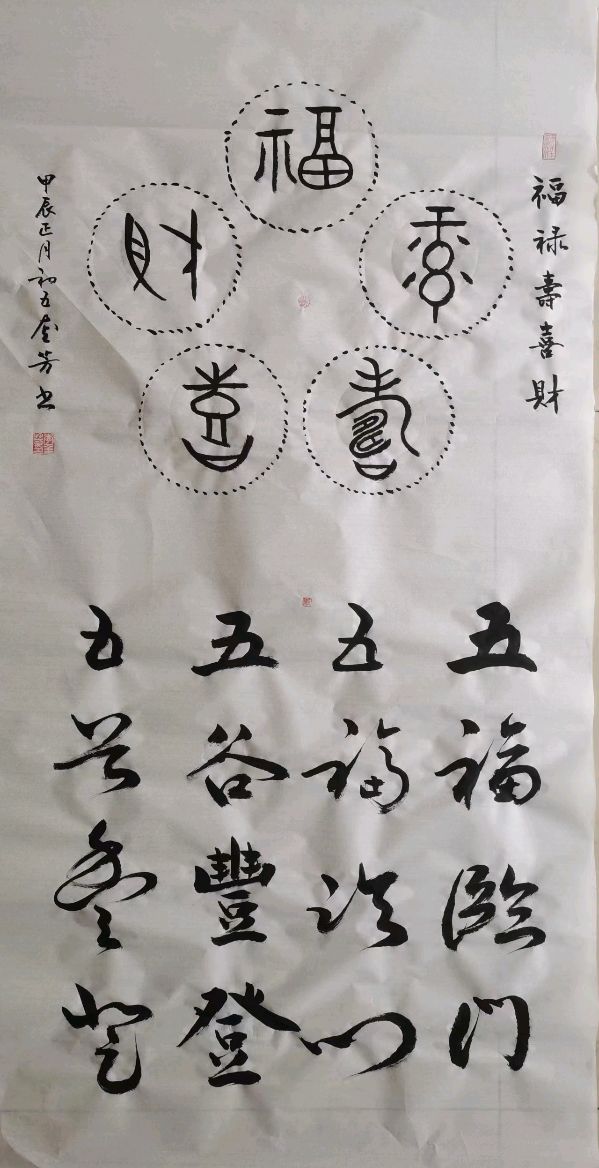 福禄壽喜財
福
禄
壽
喜
財
甲辰正月初五金芳书
五福臨門
五福临门
五谷豐登
五谷丰登